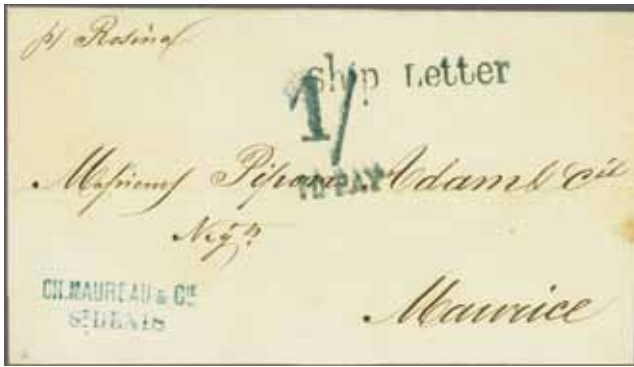 p/ Rosina
Ship Letter
1/
TO PAY
Messieurs Pipon Adam & Cie
Negts
CH. MAUREAU & CIE
ST DENIS
Maurice